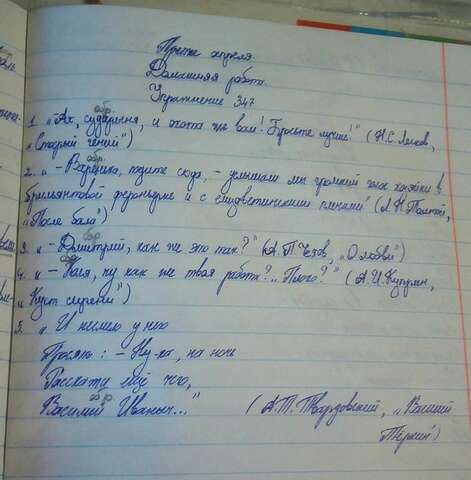 Третье апреля.
Домашняя работа.
Упражнение 347
обр.
1. „Ах, сударыня, и охота же вам! Бросьте лучше!" (Н.С. Лесков,
„Старый гений")
обр.
2. „ – Варенька, подите сюда, – услышали мы громкий голос хозяйки в
брильянтовой фероньерке и с елизаветинскими плечами" (Л.Н. Толстой,
„После бала")
обр
3. „ – Дмитрий, как же это так?" (А.П. Чехов, „О любви")
обр
4. „ – Коля, ну как же твоя работа?.. Плохо?" (А.И. Куприн,
„Куст сирени")
5. „ И несмело у него
Просят: – Ну-ка, на ночь
Расскажи ещё чего,
обр.
Василий Иваныч..." (А.Т. Твардовский, „Василий
Теркин")